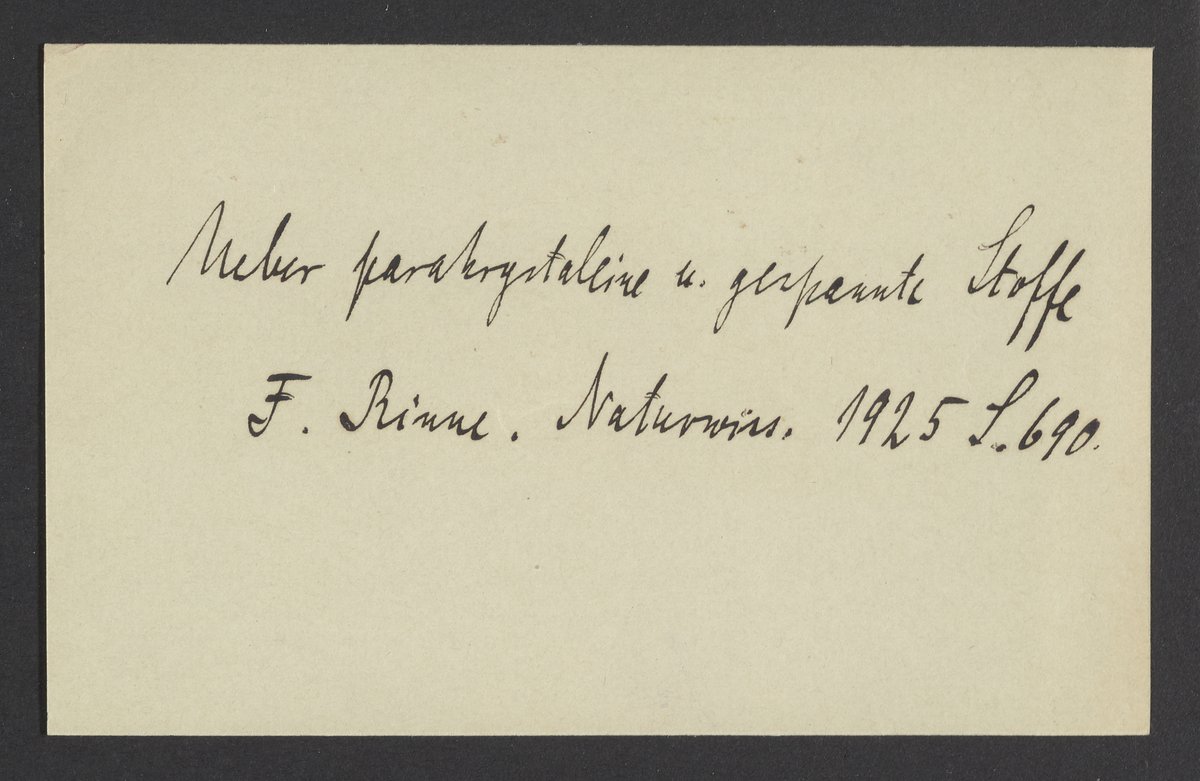 Ueber parakrystalline u. gespannte Stoffe
F. Rinne. Naturwiss. 1925 S. 690.